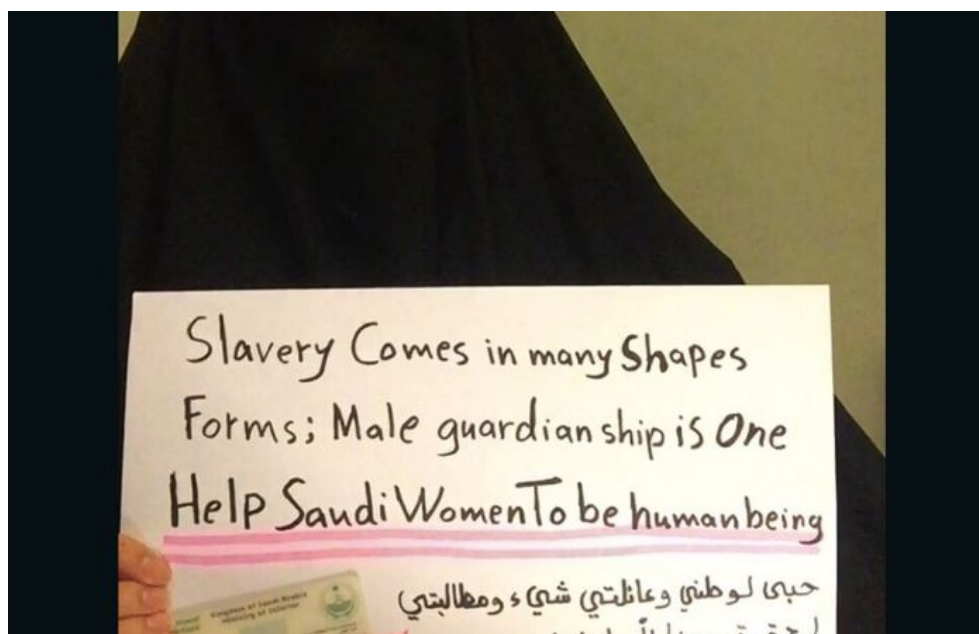 Slavery Comes in many Shapes
Forms; Male guardianship is One
Help Saudi Women To be human being
حبي لوطني وعائلتي شيء ومطالبتي
Kingdom of Saudi Arabia
Ministry of Interior